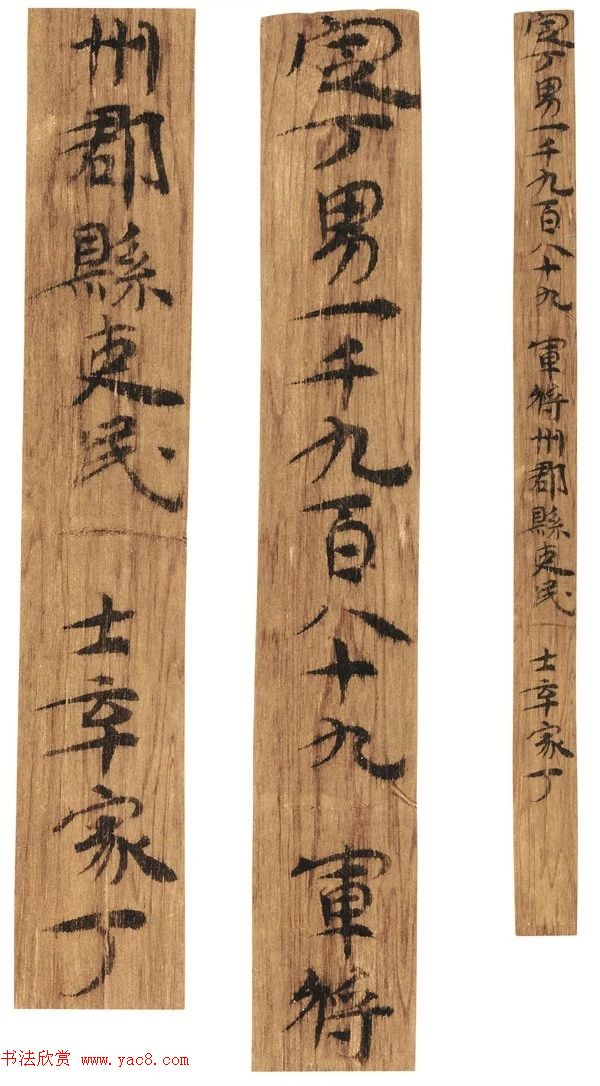 定丁男一千九百八十九 軍將州郡縣吏民 士卒家丁
定丁男一千九百八十九 軍將
州郡縣吏民 士卒家丁
书法欣赏 www.yac8.com